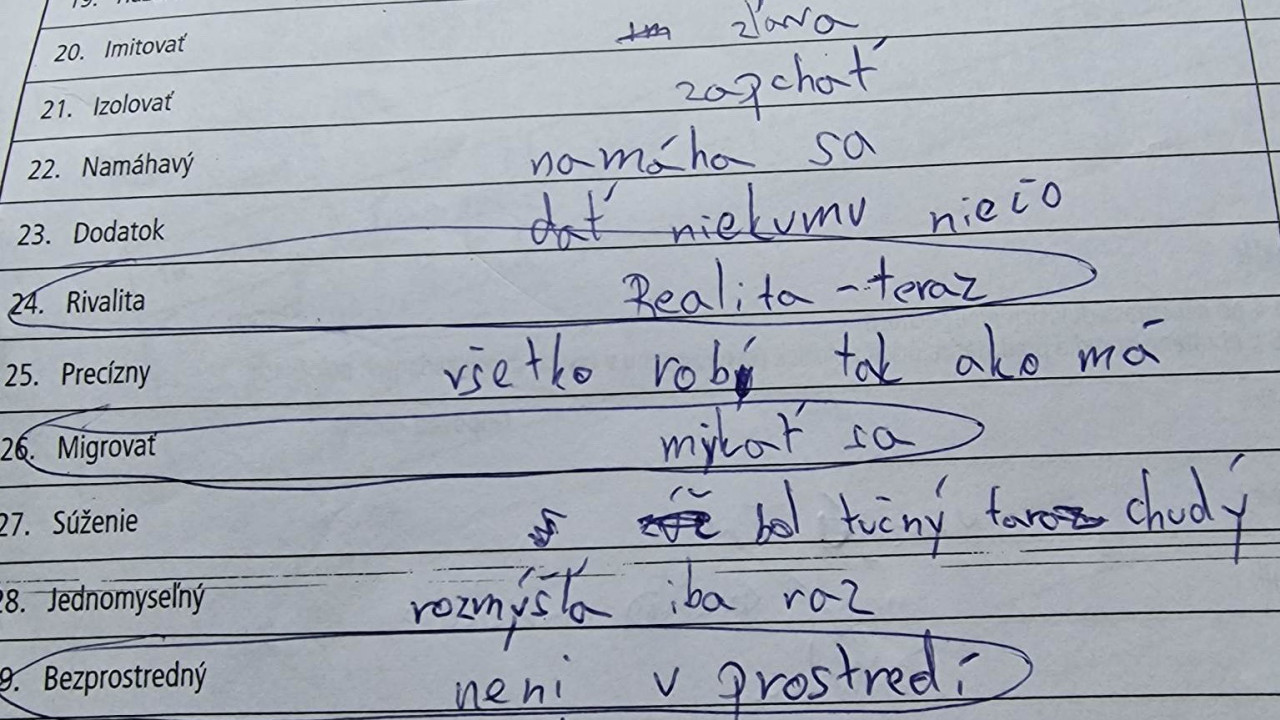 20. Imitovať zľava
21. Izolovať zapchať
22. Namáhavý namáha sa
23. Dodatok dať niekumu niečo
24. Rivalita Realita - teraz
25. Precízny všetko robí tak ako má
26. Migrovať mýkať sa
27. Súženie bol tučný taraz chudý
28. Jednomyseľný rozmýšľa iba raz
9. Bezprostredný neni v prostredí